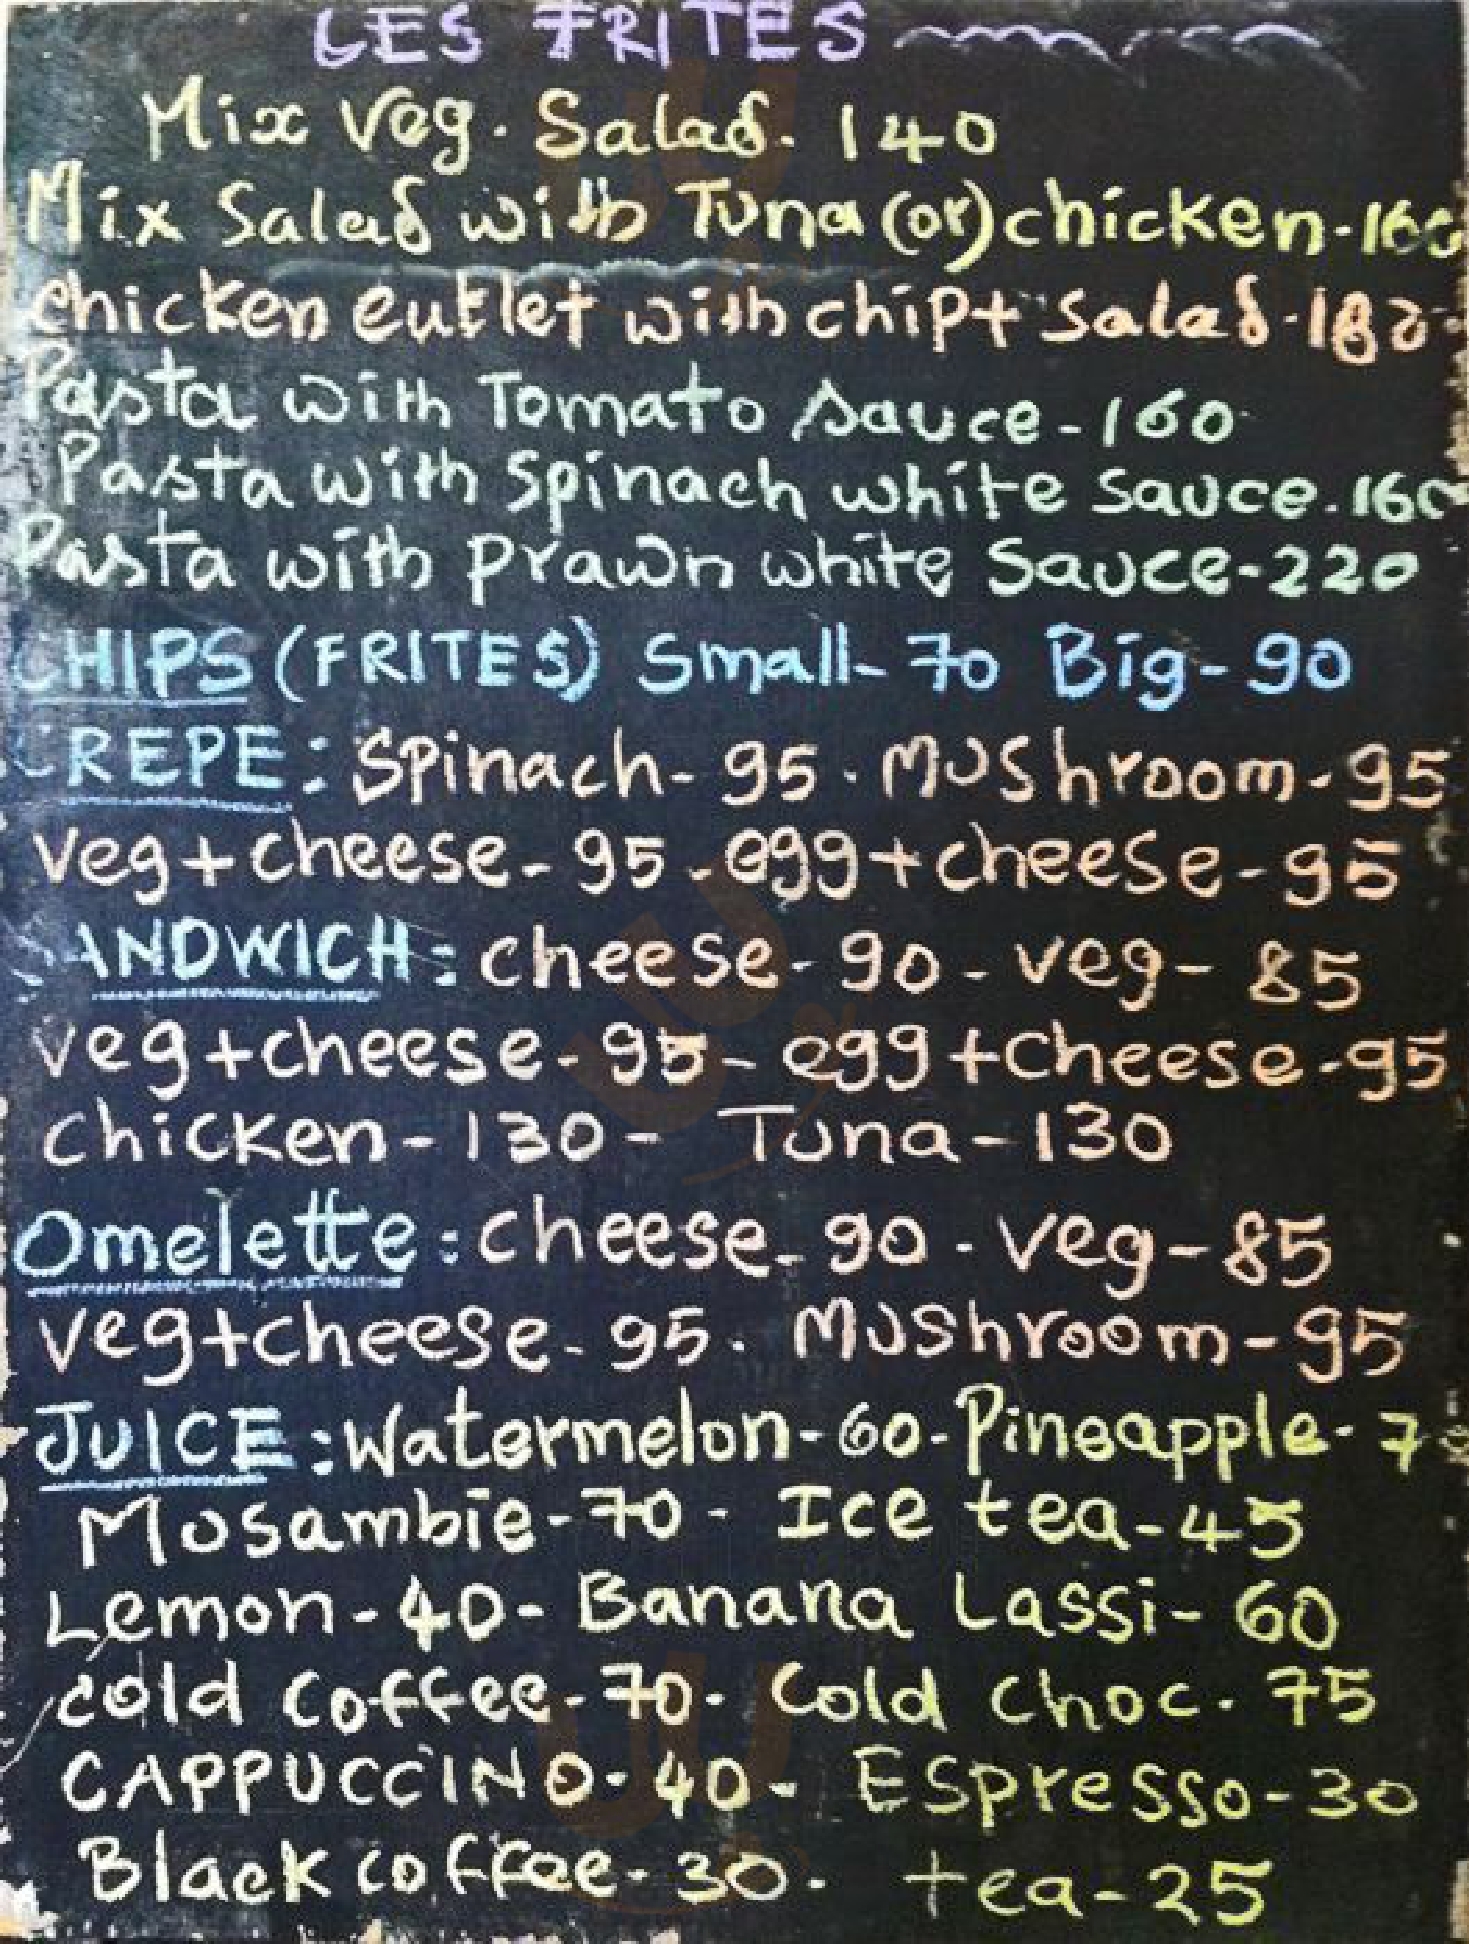 LES FRITES
Mix Veg. Salad. 140
Mix Salad with Tuna (or) chicken-160
chicken cutlet with chip+ Salad-180
Pasta with Tomato Sauce-160
Pasta with Spinach white Sauce.160
Pasta with Prawn white Sauce-220
CHIPS (FRITES) Small-70 Big-90
CREPE: Spinach-95. Mushroom-95
Veg+cheese-95.egg+cheese-95
SANDWICH: cheese-90-veg-85
veg+cheese-95-egg+cheese-95
chicken-130- Tuna-130
Omelette: cheese-90-veg-85
veg+cheese-95. Mushroom-95
JUICE: Watermelon-60-Pineapple-7
Mosambie-70- Ice tea-45
Lemon-40-Banana Lassi-60
cold coffee-70- Cold choc. 75
CAPPUCCINO-40- Espresso-30
Black coffee-30- tea-25